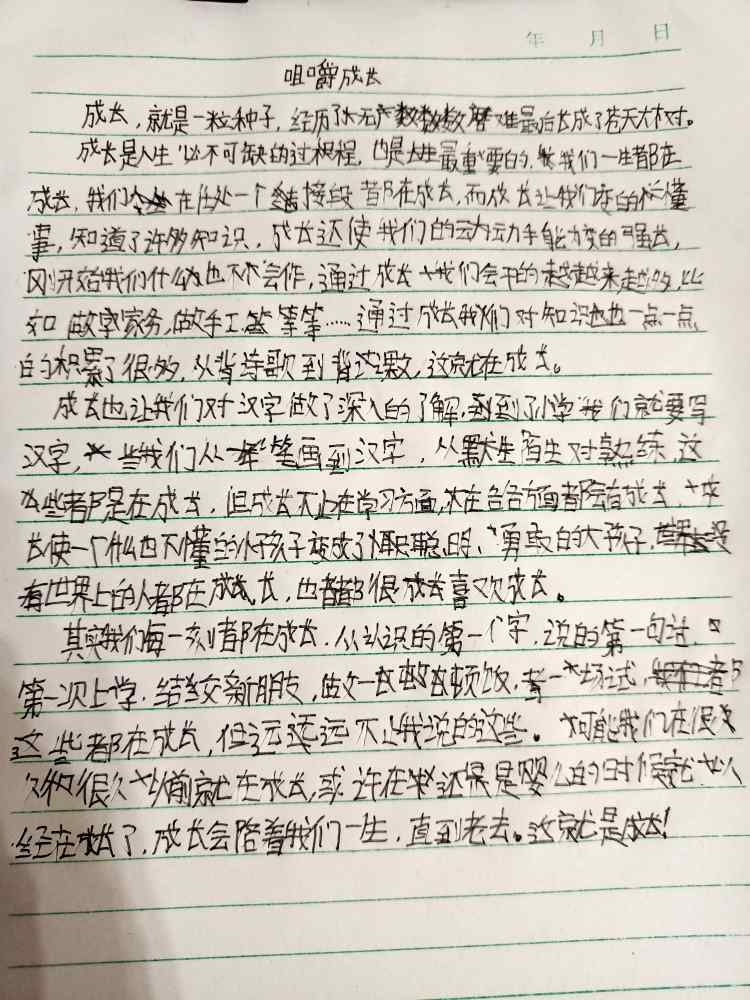 年 月 日
咀嚼成长
成长，就是一粒种子，经历了无数磨难最后长成了苍天大树。
成长是人生必不可缺的过程，也是人生最重要的，我们一生都在
成长，我们在任处一个接段都在成长，而成长让我们变的懂
事，知道了许多知识，成长还使我们的动手能力变的强长，
刚开始我们什么也不会作，通过成长我们会干的越来越多，比
如做家务，做手工等等……通过成长我们对知识也一点一点
的积累了很多，从背诗歌到背课文，这就在成长。
成长也让我们对汉字做了深入的了解，到了小学我们就要写
汉字，我们从笔画到汉字，从陌生对熟练，这
些都是在成长，但成长不止在学习方面，在各各方面都会有成长，成
长使一个什么也不懂的小孩子变成了聪明、勇敢的大孩子，没
有世界上的人都在成长，也都很喜欢成长。
其实我们每一刻都在成长，从认识的第一个字，说的第一句话，
第一次上学，结交新朋友，做一顿饭，考一场试，
这些都在成长，但远远不止我说的这些。可能我们在很久
很久以前就在成长，或许在还是婴儿的时候就以
经在成长了，成长会陪着我们一生，直到老去。这就是成长！